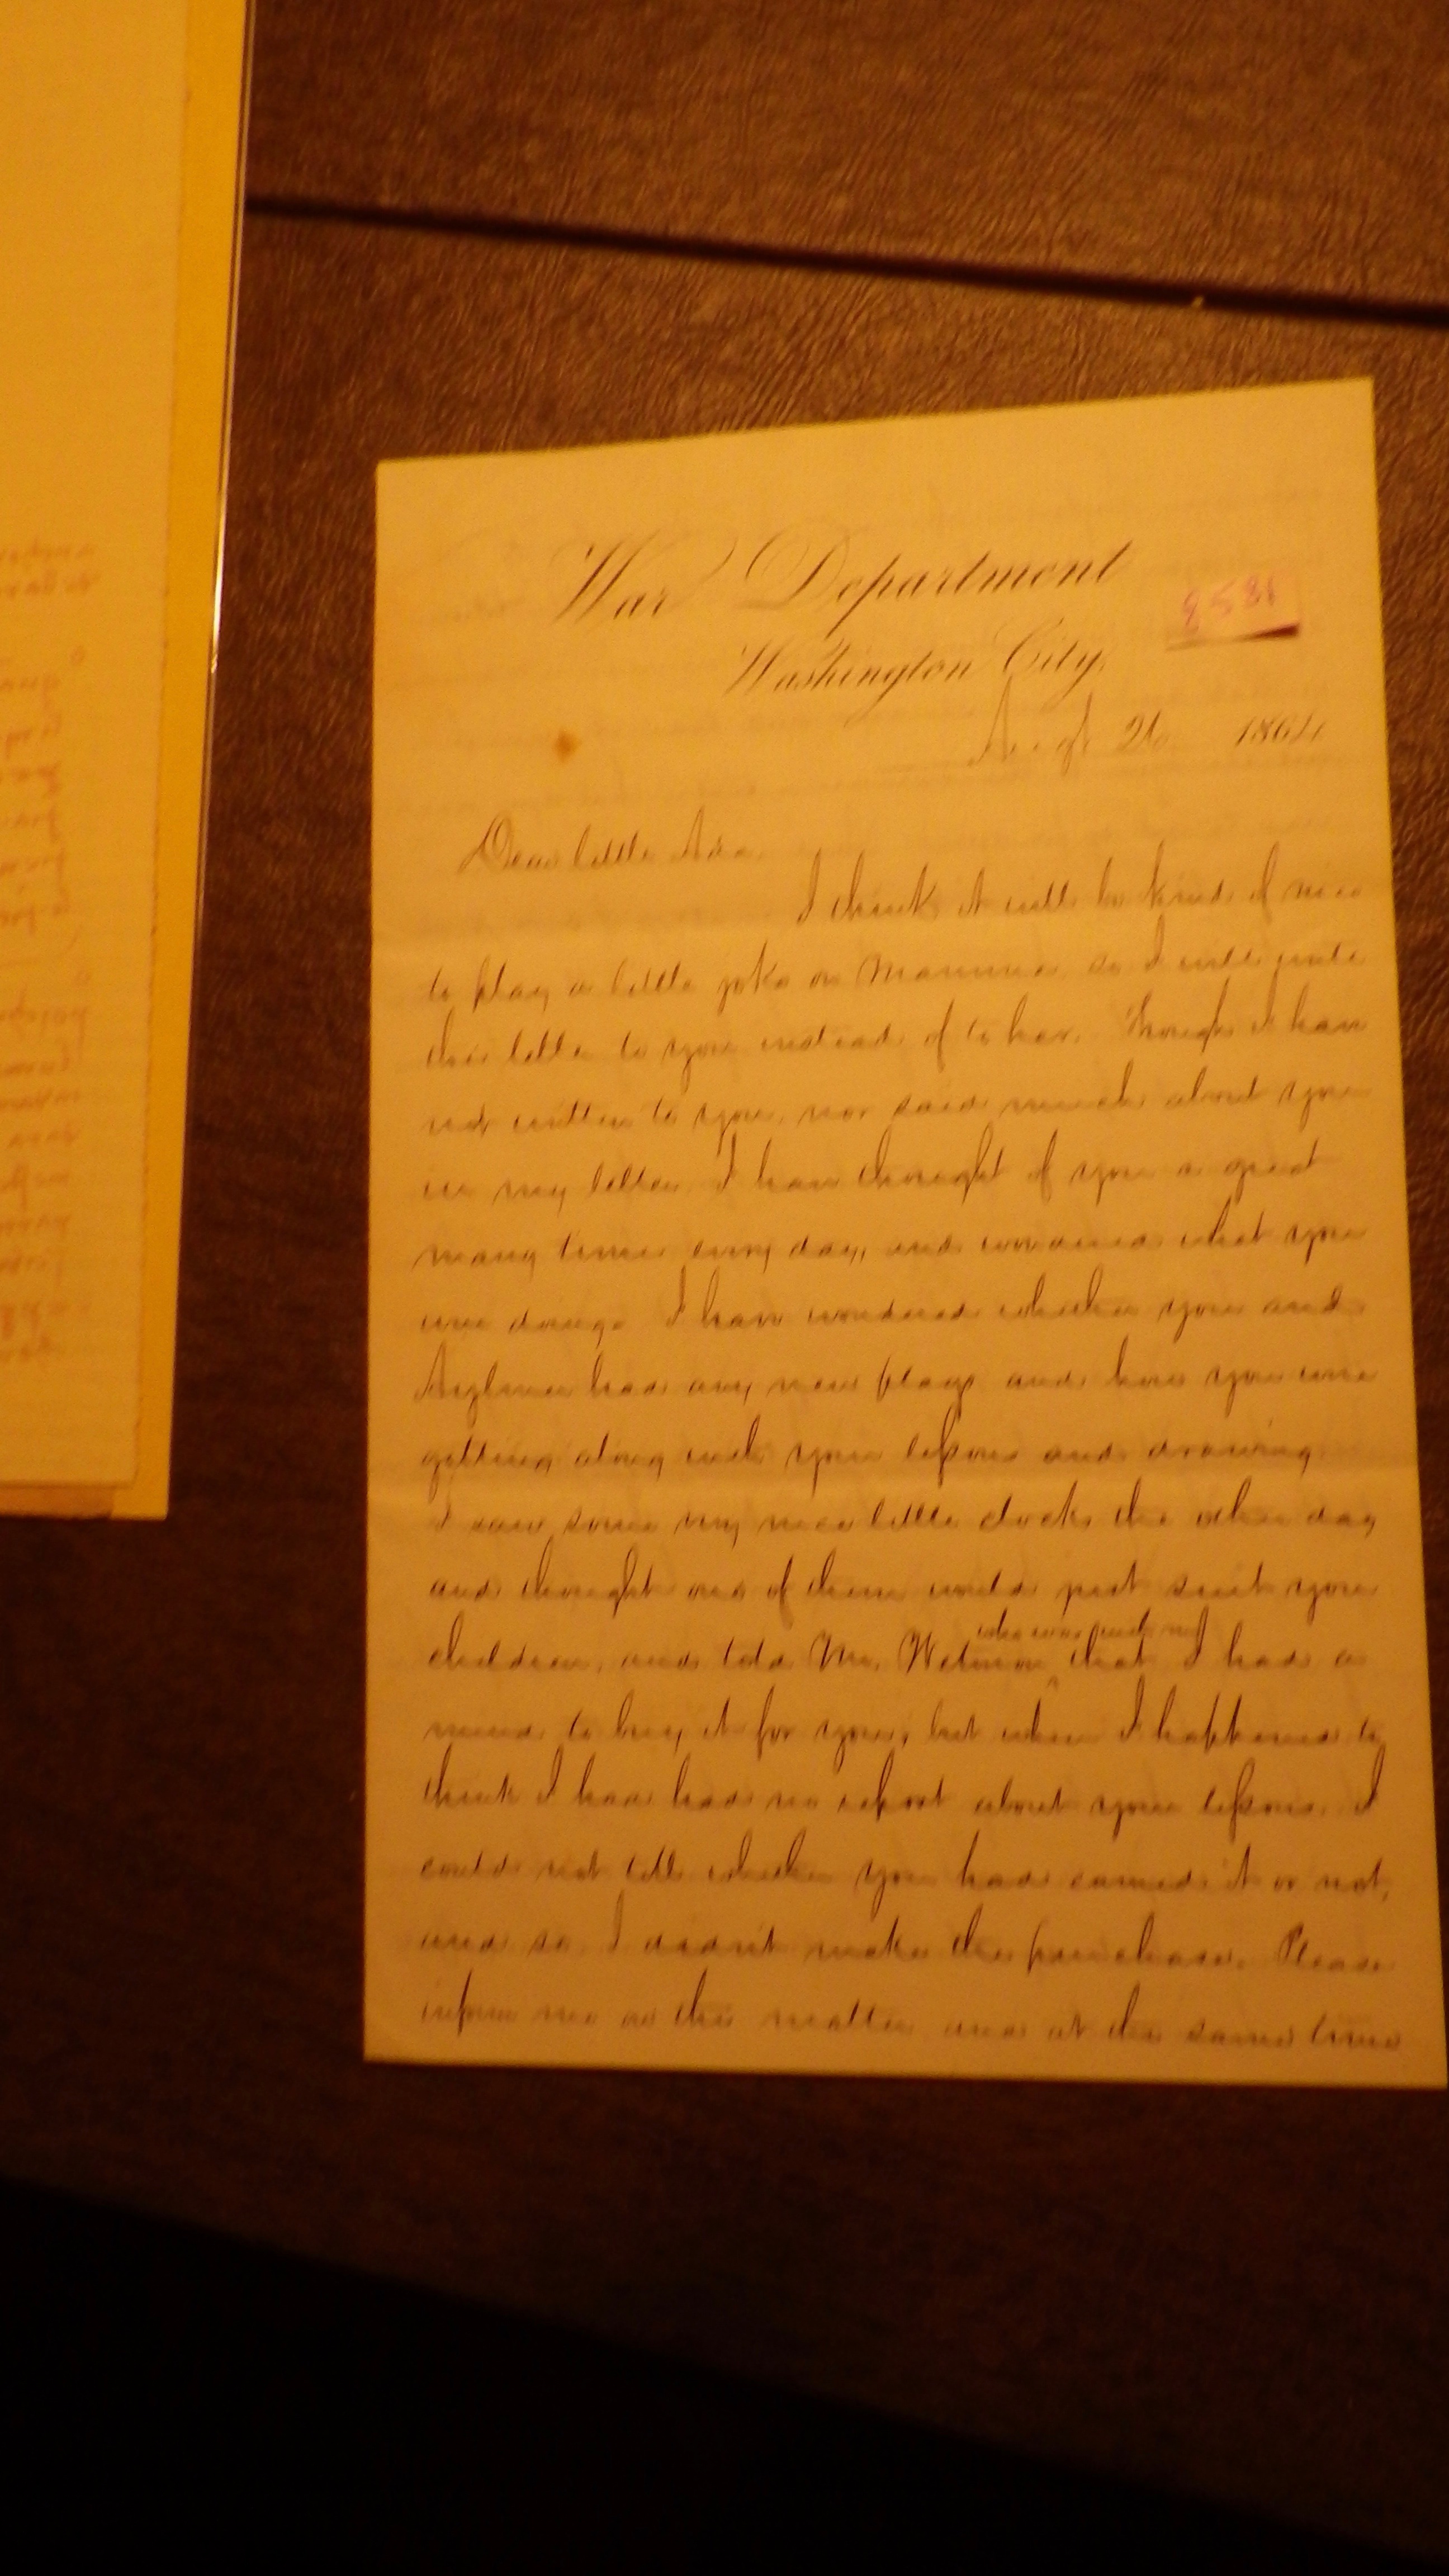 War Department
Washington City,
8581
Aug 26 1864
Dear little Ada.
I think it will be kind of nice
to play a little joke on Mamma so I will write
this letter to you instead of to her. Though I have
not written to you, nor said much about you
in my letters I have thought of you a great
many times every day, and wondered what you
were doing. I have wondered whether you and
had any new plays and how you were
getting along with your lessons and drawing.
I saw some very nice little clocks the other day
and thought one of them would just suit you
who was with me
children, and told Mr. that I had a
mind to buy it for you, but when I happened to
think I had had no report about your lessons, I
could not tell whether you had earned it or not,
and so I didn't make the purchase. Please
inform me on this matter and at the same time